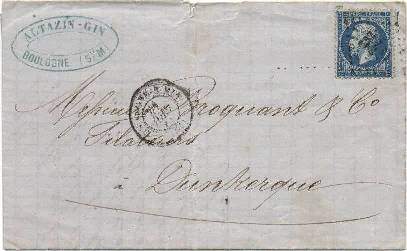 ALTAZIN-GIN
BOULOGNE S/M
Messieurs Proquant & Co
Filateurs
à Dunkerque